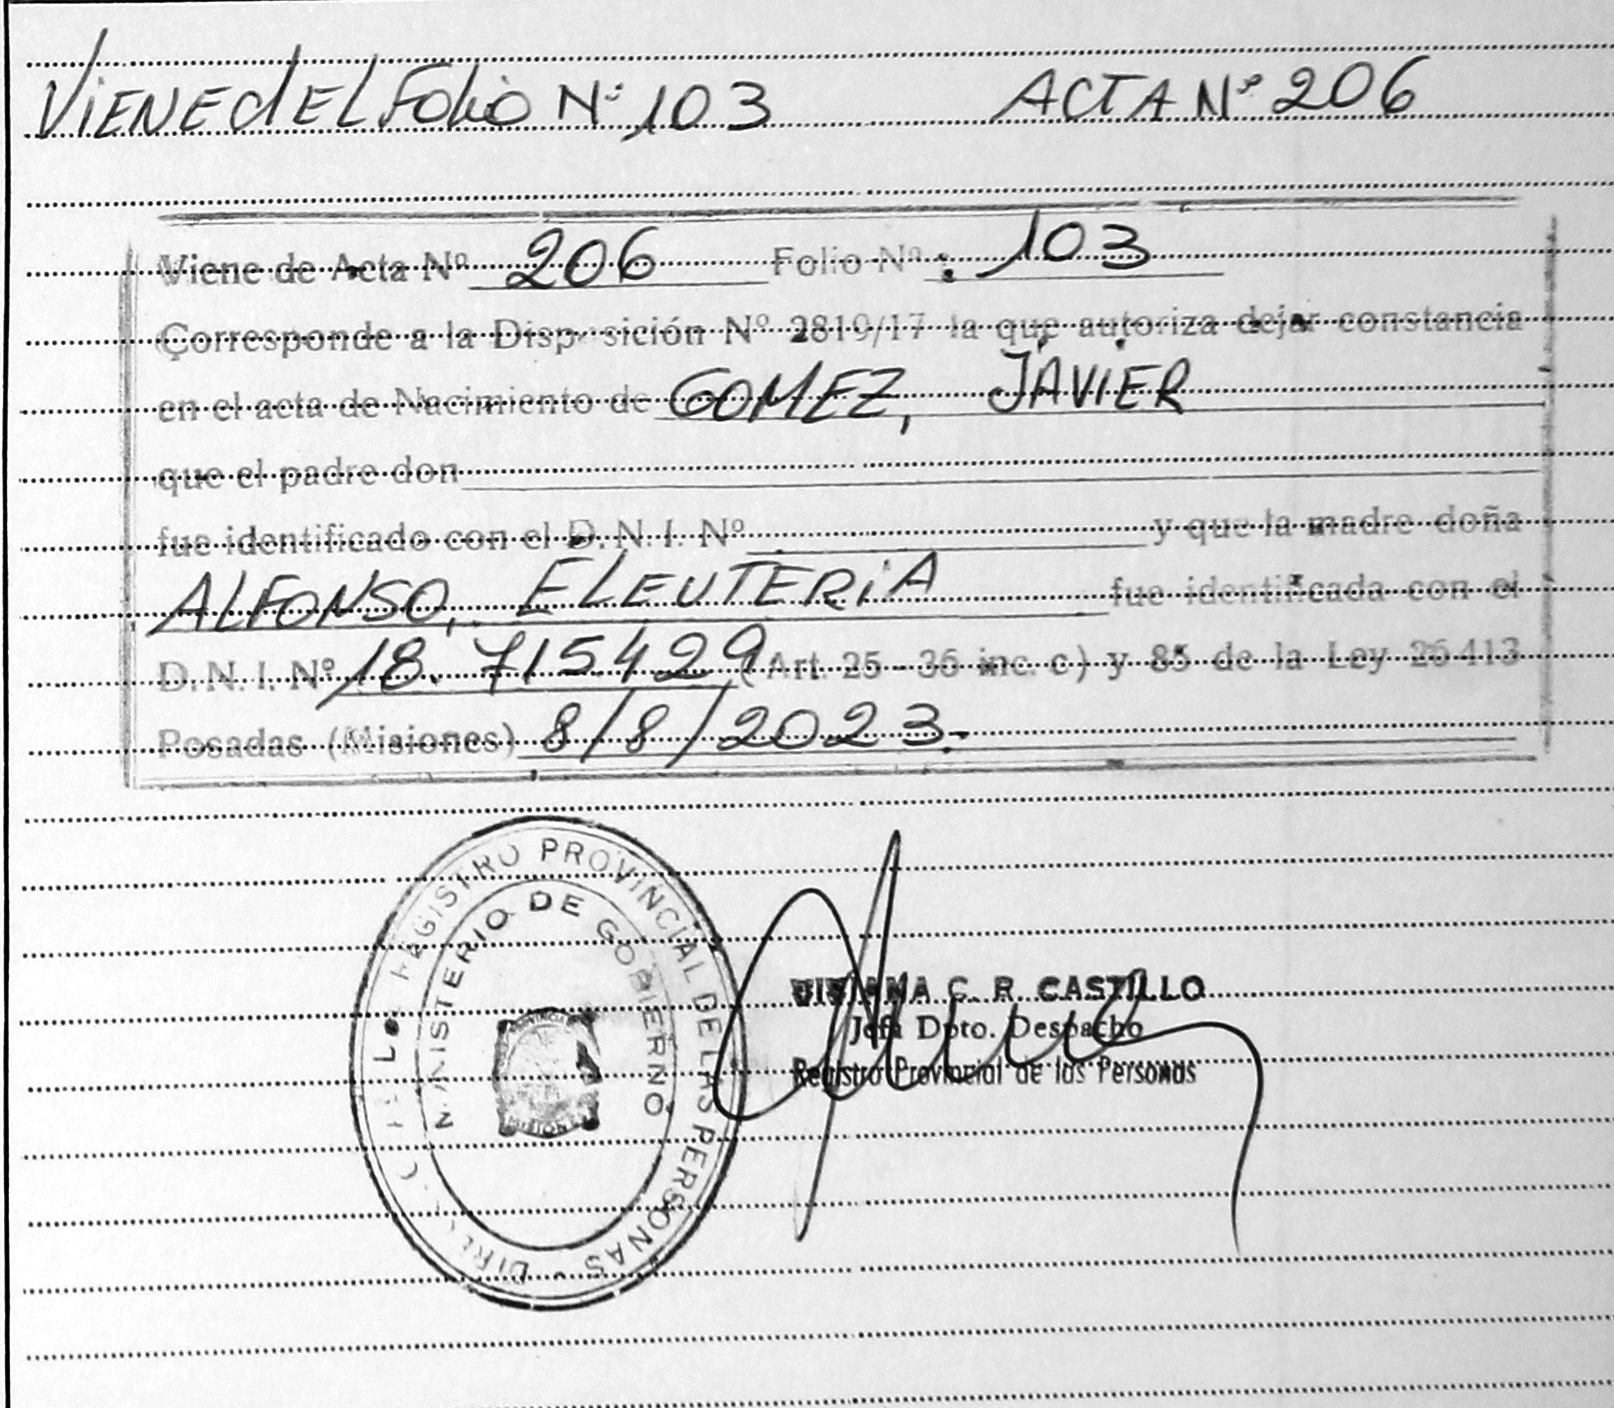 VIENE dEL Folio Nº 103 ACTA Nº 206
Viene de Acta Nº 206 Folio Nº : 103
Corresponde a la Disposición Nº 2819/17 la que autoriza dejar constancia
en el acta de Nacimiento de GOMEZ, JAVIER
que el padre don
fue identificado con el D. N. I. Nº y que la madre doña
ALFONSO, ELEUTERiA fue identificada con el
D. N. I. Nº 18.715429 (Art. 25 - 36 inc. c) y 85 de la Ley 26413
Posadas (Misiones) 8/8/2023.-
REGISTRO PROVINCIAL DE LAS PERSONAS -
MINISTERIO DE GOBIERNO
PROVINCIA
MISIONES
C. R. CASTILLO
Jefa Dpto. Despacho
Registro Provincial de las Personas